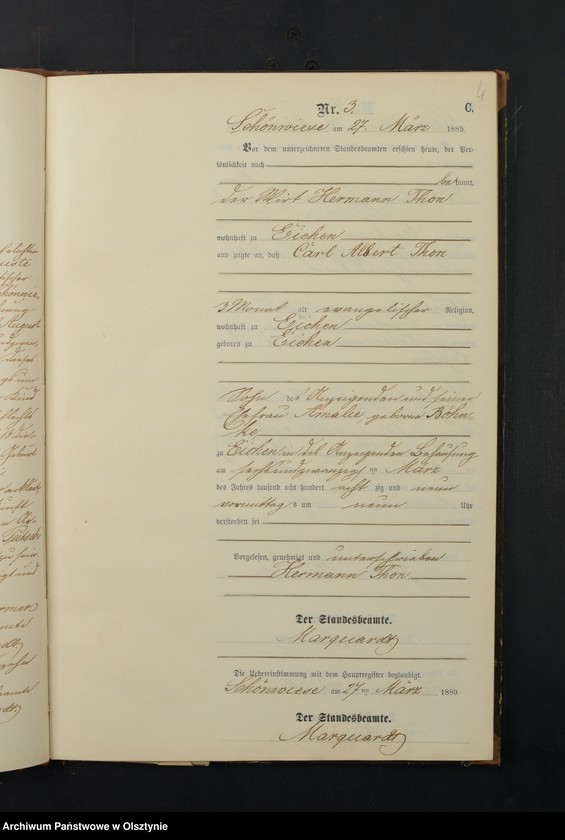 4
Nr. 3. C.
Schönwiese am 27. März 1889.
Vor dem unterzeichneten Standesbeamten erschien heute, der Per-
sönlichkeit nach
bekannt,
der Wirt Hermann Thon
wohnhaft zu Eichen
und zeigte an, daß Carl Albert Thon
3 Monat alt evangelischer Religion,
wohnhaft zu Eichen
geboren zu Eichen
Sohn des Anzeigenden und seiner
Ehefrau Amalie, geborne Böhn-
ke
zu Eichen in des Anzeigenden Behausung
am sechsundzwanzigsten März
des Jahres tausend acht hundert achtzig und neun
vormittags um neun Uhr
verstorben sei
Vorgelesen, genehmigt und unterschrieben
Hermann Thon
Der Standesbeamte.
Marquardt
Die Uebereinstimmung mit dem Hauptregister beglaubigt.
Schönwiese am 27ten März 1889.
Der Standesbeamte.
Marquardt
Archiwum Państwowe w Olsztynie